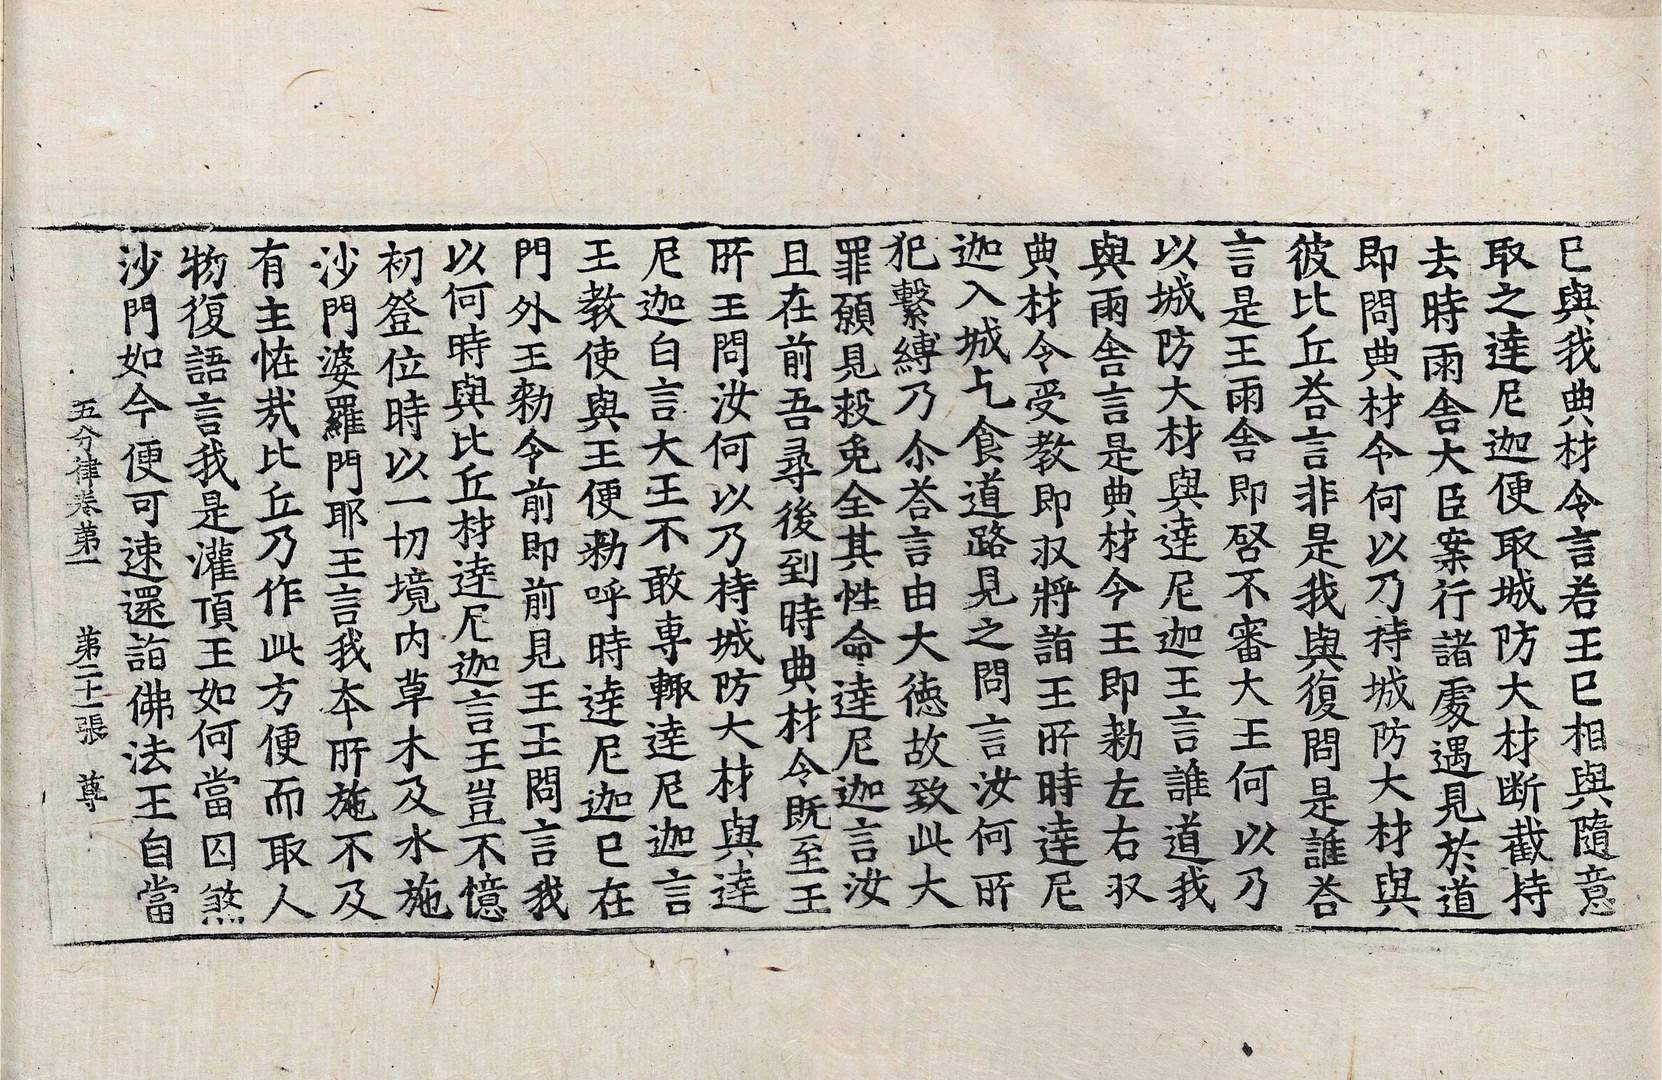 已與我典材令言若王已相與隨意
取之達尼迦便取城防大材断截持
去時雨舍大臣案行諸處遇見於道
即問典材令何以乃持城防大材與
彼比丘荅言非是我與復問是誰荅
言是王雨舍即啓不審大王何以乃
以城防大材與達尼迦王言誰道我
與雨舍言是典材令王即勑左右収
典材令受教即収將詣王所時達尼
迦入城乞食道路見之問言汝何所
犯繫縛乃尒荅言由大德故致此大
罪願見救免全其性命達尼迦言汝
且在前吾尋後到時典材令既至王
所王問汝何以乃持城防大材與達
尼迦白言大王不敢専輙達尼迦言
王教使與王便勑呼時達尼迦已在
門外王勑令前即前見王王問言我
以何時與比丘材達尼迦言王豈不憶
初登位時以一切境内草木及水施
沙門婆羅門耶王言我本所施不及
有主恠㢤比丘乃作此方便而取人
物復語言我是灌頂王如何當囚煞
沙門如今便可速還詣佛法王自當
五分律卷第一　第二十一張　尊